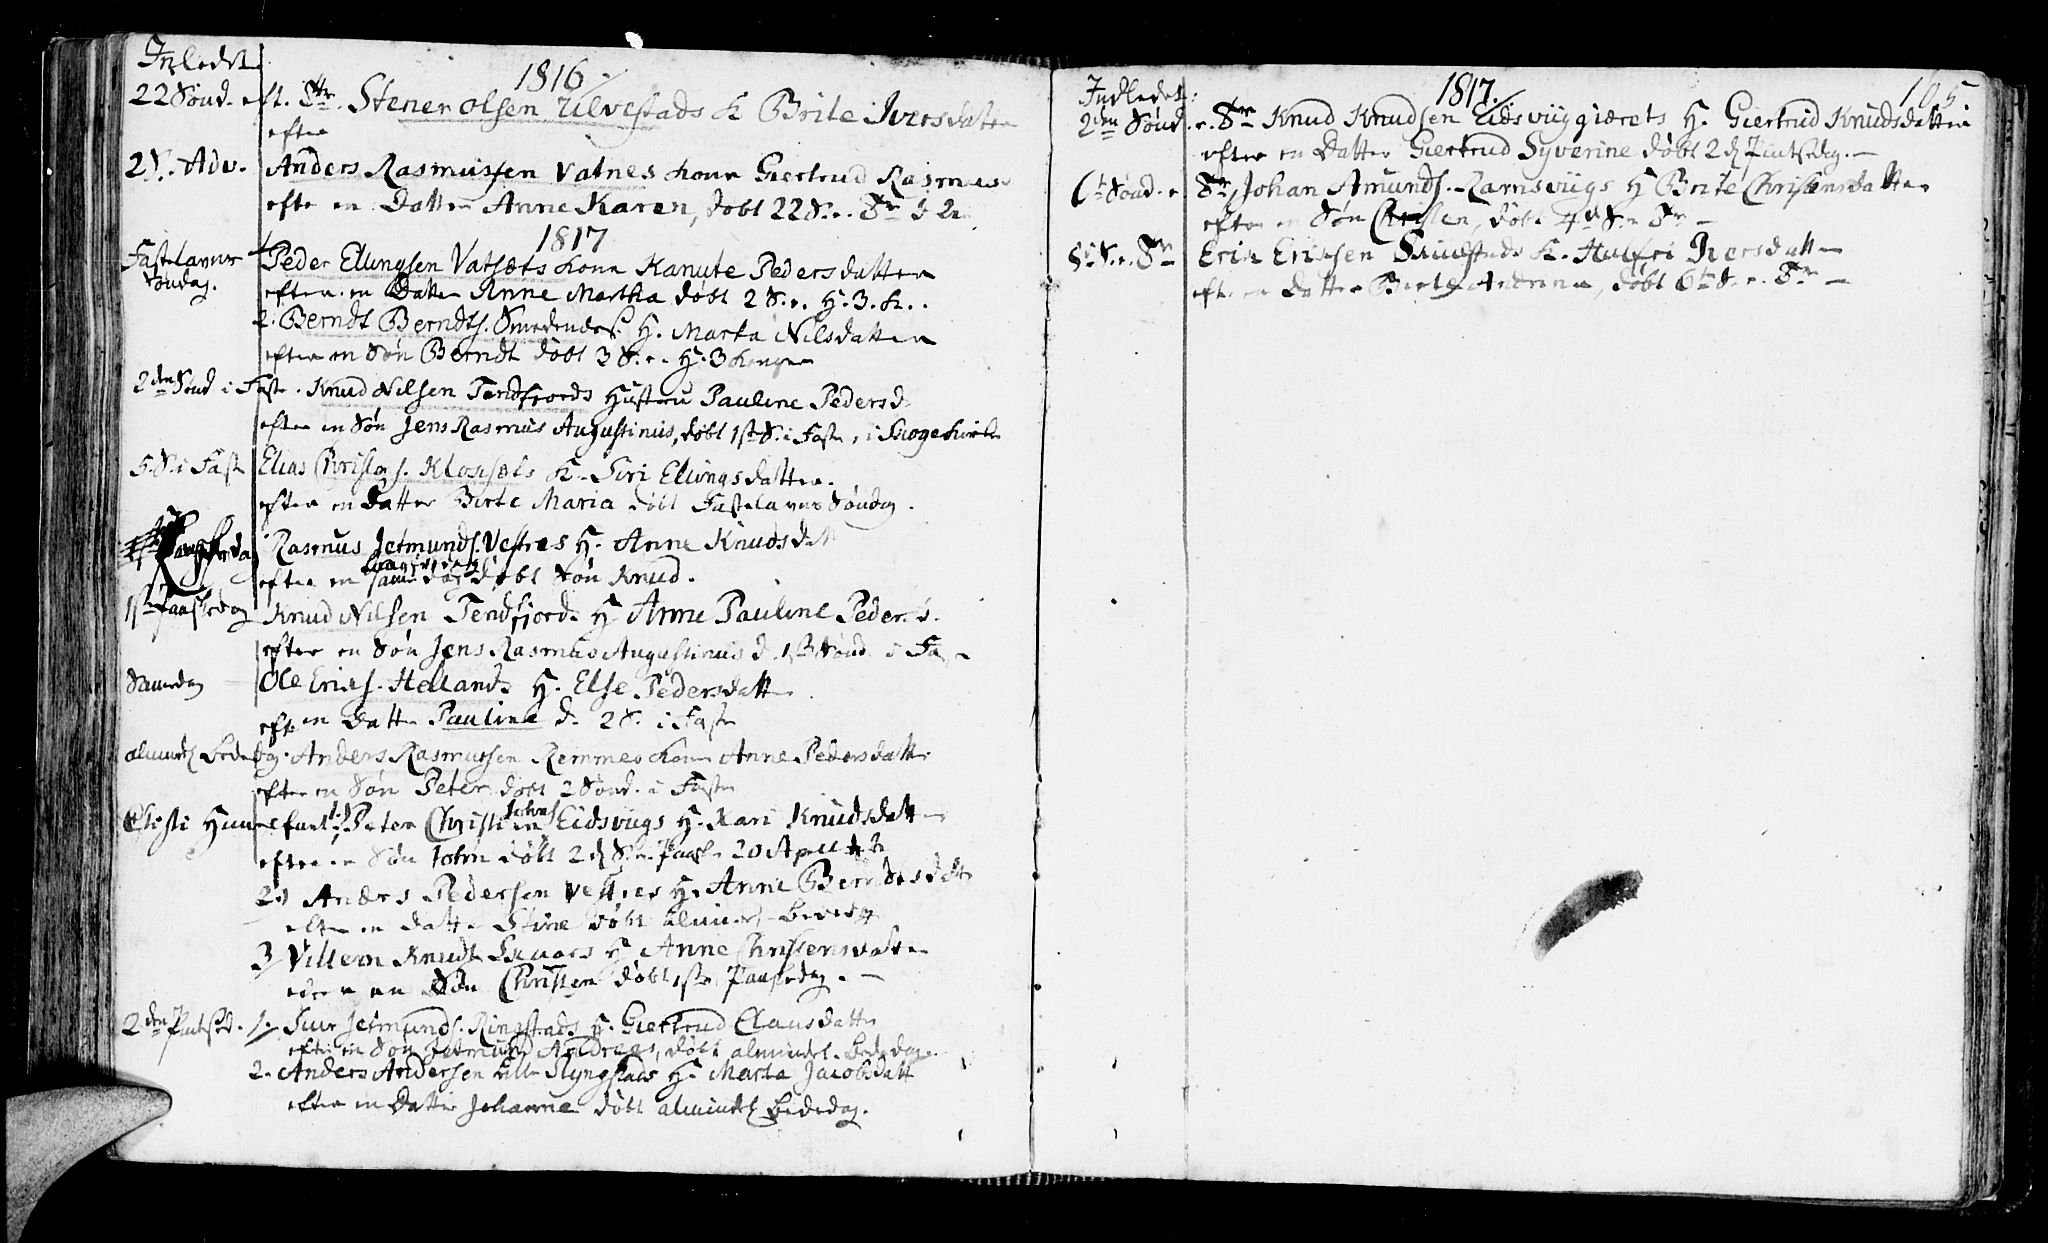 Inledet
1816
22 Sønd. eft. Tr. Stener Olsen Ulvestads K Brite Iversdatter
efter
2 S. Adv. Anders Rasmussen Vatnes Kone Giertrud Rasmus
efter en Datter Anne Karen, døbt 22 S. e. Tr.
1817
Fastelavns Søndag. 1 Peder Ellingsen Vatsets Kone Kanute Pedersdatter
efter en Datter Anne Martha døbt 2 S. e. H. 3. K.
2. Berndt Berndts. H. Marta Nilsdatter
efter en Søn Berndt døbt 3 S. e. H. 3 Konger
2den Sønd i Faste. Knud Nilsen Tendfjords Hustru Pauline Pedersd.
efter en Søn Jens Rasmus Augustinus, døbt 1ste S. i Faste, i Kirke
5 S. i Fast Elias Christops. Kloxsets K. Siri Ellingsdatter.
efter en Datter Birte Maria døbt Fastelavns Søndag.
Rasmus Jetmunds. Vestres H. Anne Knudsdatt
efter en samme dag døbt Søn Knud.
1ste Paaskedag Knud Nilsen Tendfjords H Anne Pauline Peders d.
efter en Søn Jens Rasmus Augustinus d. 1ste Sønd i Faste
Samedag Ole Eriks. Hellands H. Else Pedersdatter
eft en Datter Pauline d. 2 S. i Faste
almindel Bededag. Anders Rasmussen Remmes Kone Anne Pedersdatter
efter en Søn Peter døbt 2 Sønd. i Faste
Christi Himmelfart 1. Peter Christen Johns Eidsviigs H. Kari Knudsdatter
efter en Søn John døbt 2d S. e. Paaske 20 April
2) Anders Pedersen Vestres H. Anne Berndtsdatt
efter en Datter Stine døbt almind. Bededag
3 Villem Knuds H Anne Christensdatter
efter en Søn Christen døbt 1ste Paaskedag.
2den Pintsed. 1. Siur Jetmunds. Ringstads H. Giertrud Clausdatter
efter en Søn Jetmund Andreas, døbt almindel. Bededag.
2. Anders Andersen Lille Slyngstads H. Marta Jacobsdatt
efter en Datter Johanne døbt almindel Bededag.
Indledet:
1817.
105
2den Sønd. e. Tr Knud Knudsen Eidsviiggiærets H. Giertrud Knudsdatter
efter en Datter Giertrud Syverine døbt 2d Pintsedag.
6te Sønd. e Tr. Johan Amunds. Ramsviigs H Brite Christensdatter
efter en Søn Christen, døbt 4de S. e Tr
8de S. e. Tr Erik Eriksen K. Iversdatter
eft. en Datter Birte Andrina, døbt 6te S. e. Tr